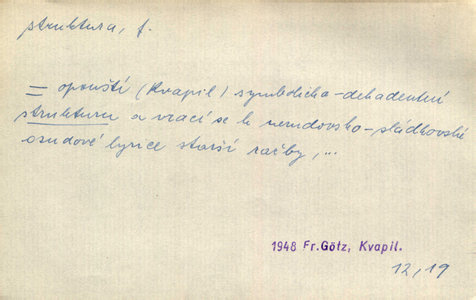 struktura, f.
= opouští (Kvapil) symbolicko-dekadentní
strukturu a vrací se k nerudovsko-sládkovské
osudové lyrice starší ražby,...
1948 Fr.Götz, Kvapil.
12,19